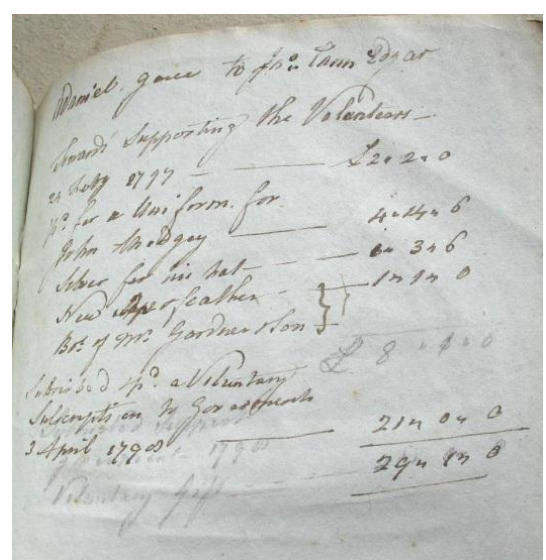 Daniel gave to Jno. Edgar
towards Supporting the Volunteers
24 1797 £2 " 2 " 0
pd for a Uniform for
John 4 " 14 " 6
Silver for his hat 0 " 3 " 6
New feather 1 " 1 " 0
Bot of Mr Gardner & Son
£ 8 " 1 " 0
Subscribed & pd. a Voluntary
Subscription to Government
3 April 1798 21 " 0 " 0
29 " 1 " 0
1798
Voluntary Gift